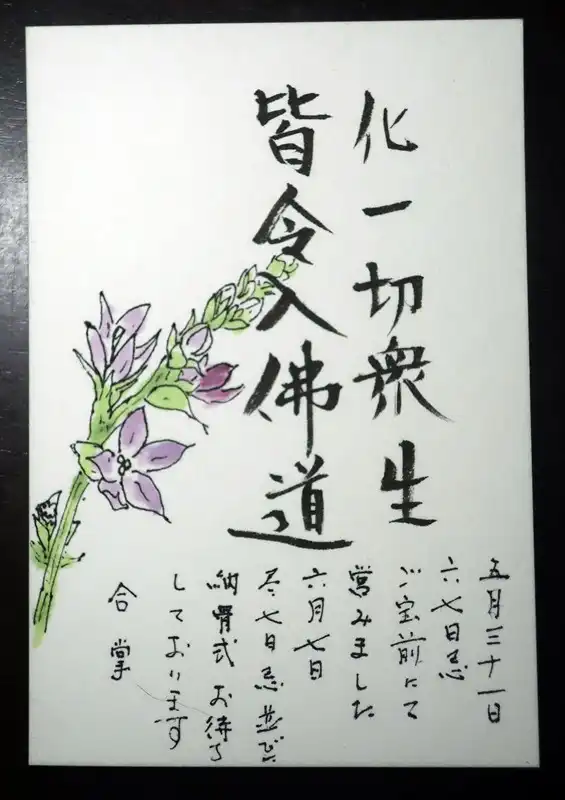 化一切衆生
皆令入佛道
五月三十一日
六七日忌
ご宝前にて
営みました
六月七日
尽七日忌並びに
納骨式お待ち
しております
合掌